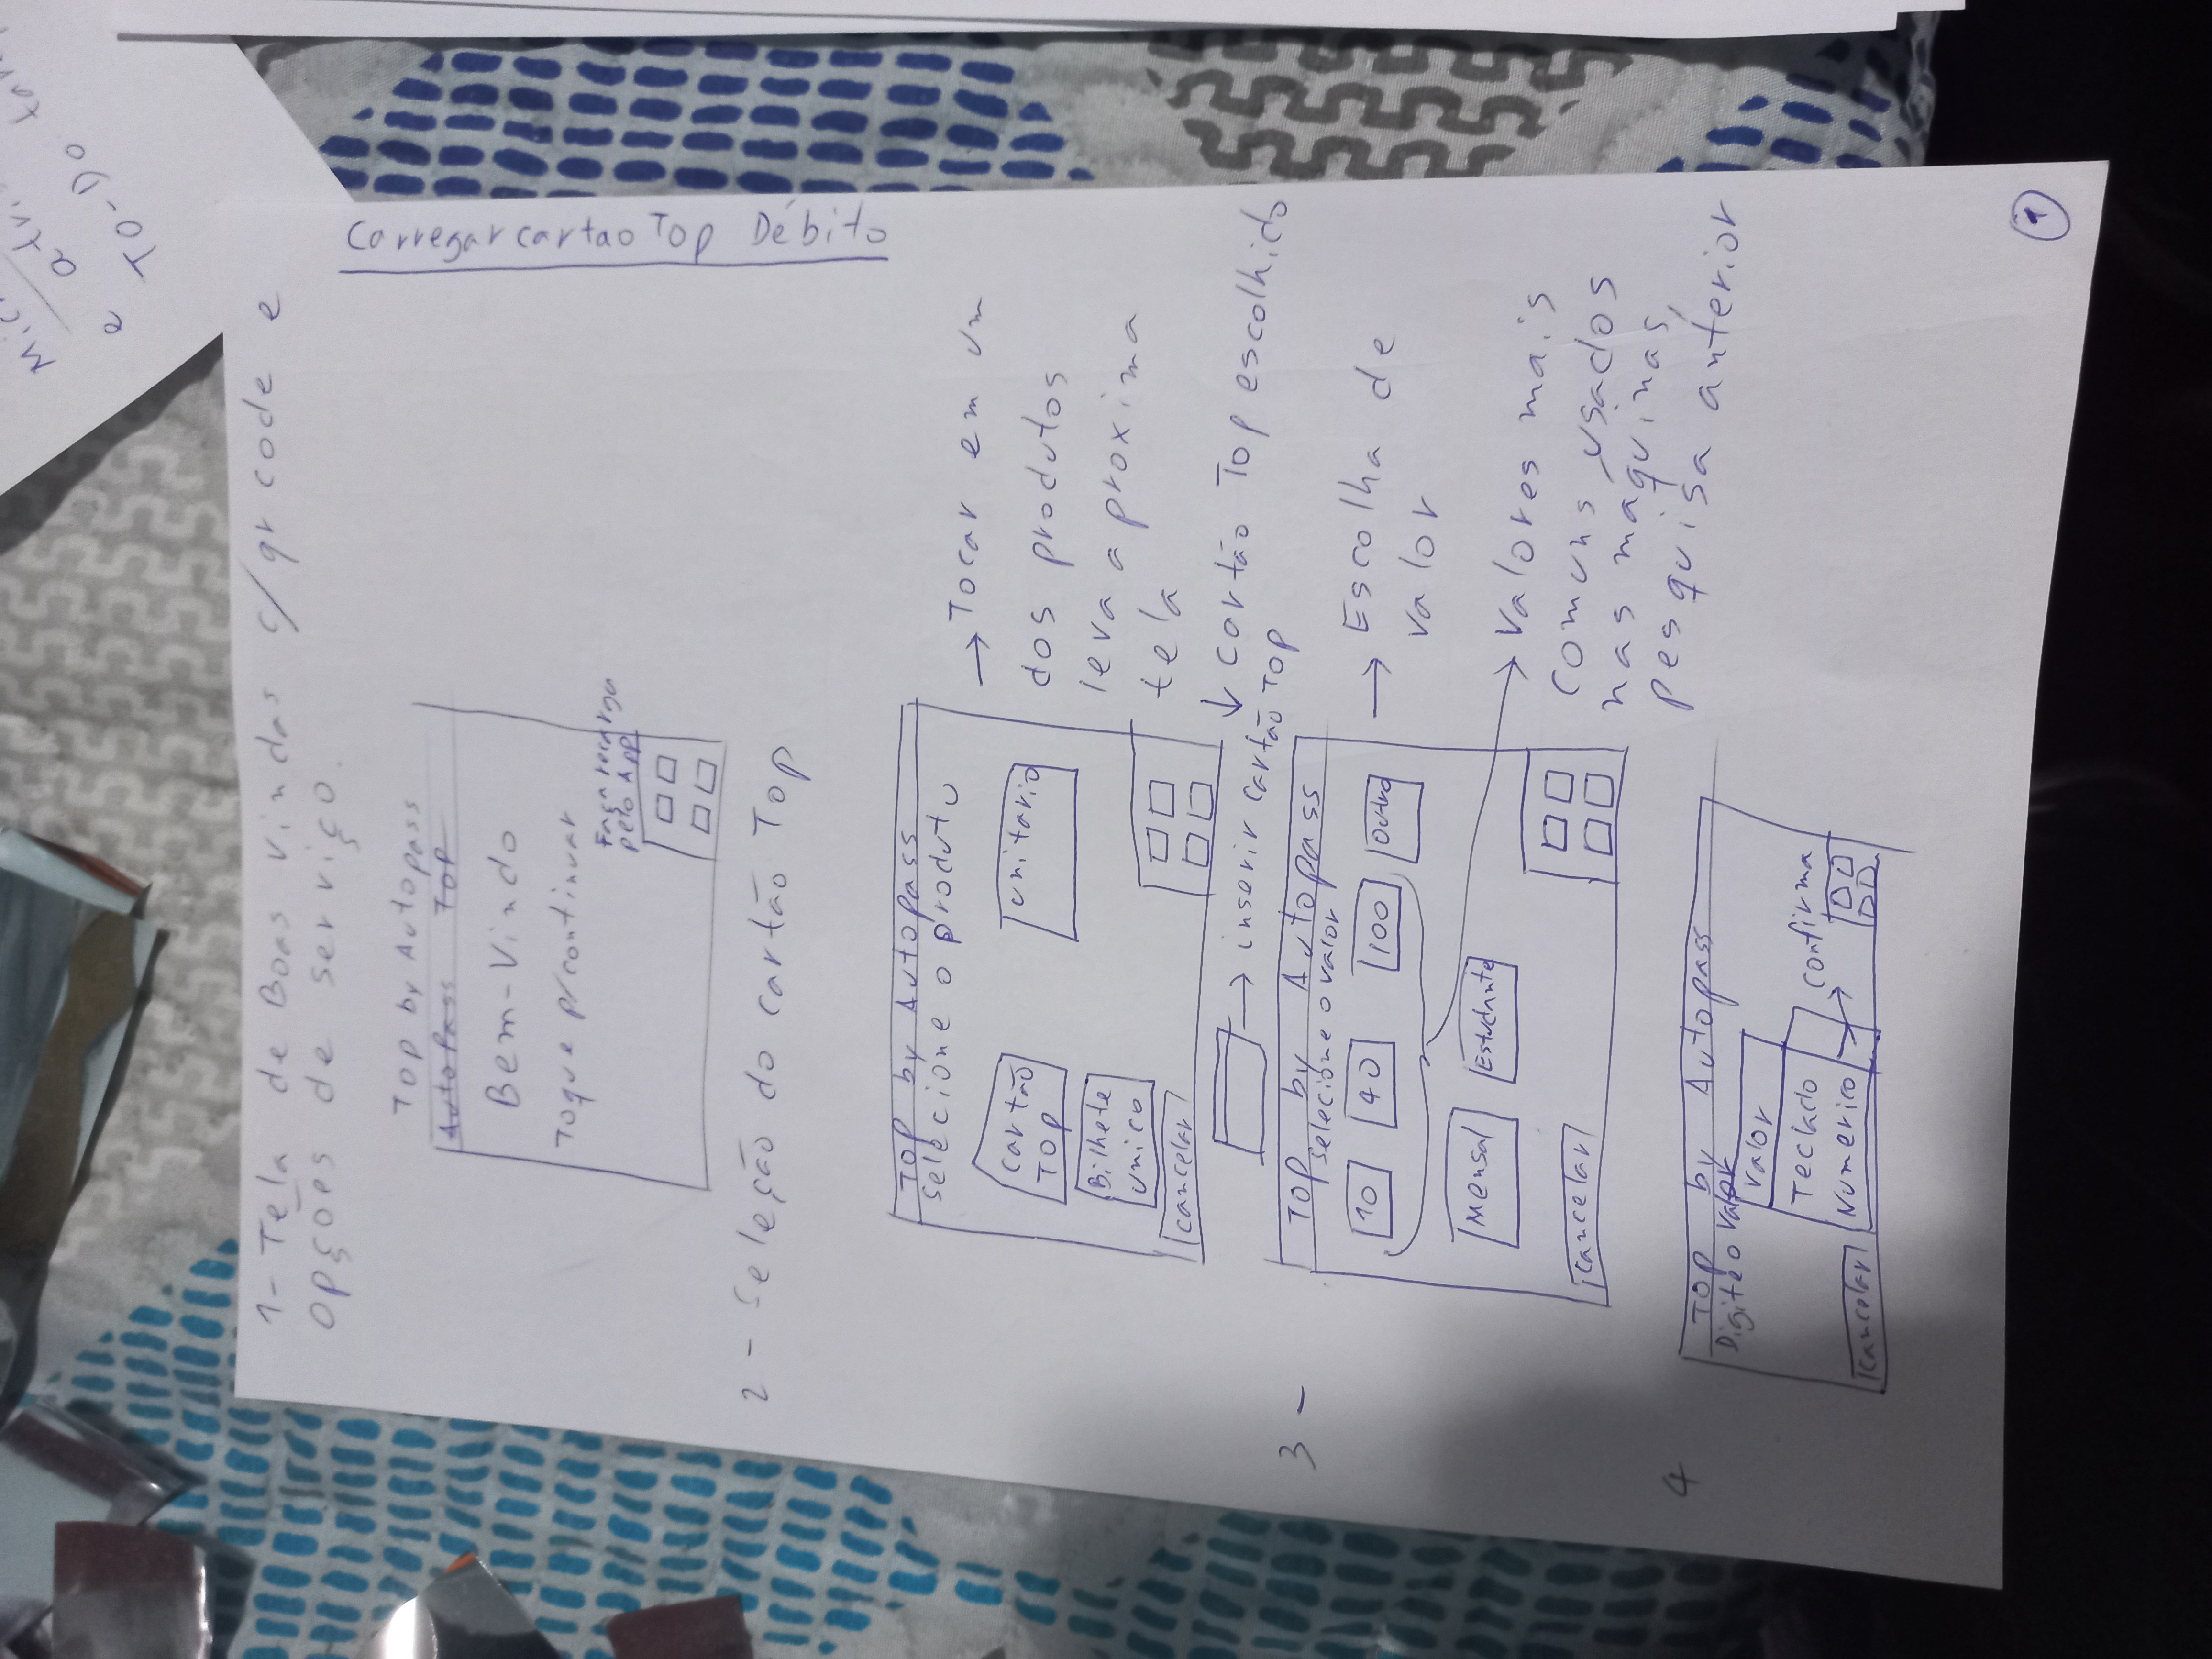 1- Tela de Boas vindas c/ qr code e
opções de serviço.
Top by Autopass
AutoPass TOP
Bem-Vindo
Toque p/continuar
Faça recarga
pelo App
2 - Seleção do cartão Top
Top by Autopass
selecione o produto
cartão
TOP
unitario
Bilhete
unico
cancelar
→ Tocar em um
dos produtos
leva a proxima
tela
↓ cartão Top escolhido
→ inserir cartão TOP
3 -
Top by Autopass
selecione o valor
10 40 100 outro
Mensal Estudante
cancelar
→ Escolha de
valor
→ Valores mais
comuns usados
nas máquinas,
pesquisa anterior
4
Top by Autopass
Digite o valor
valor
Teclado
Numerico
→ confirma
cancelar
Carregar cartao Top Débito
1
e atri
TO-DO